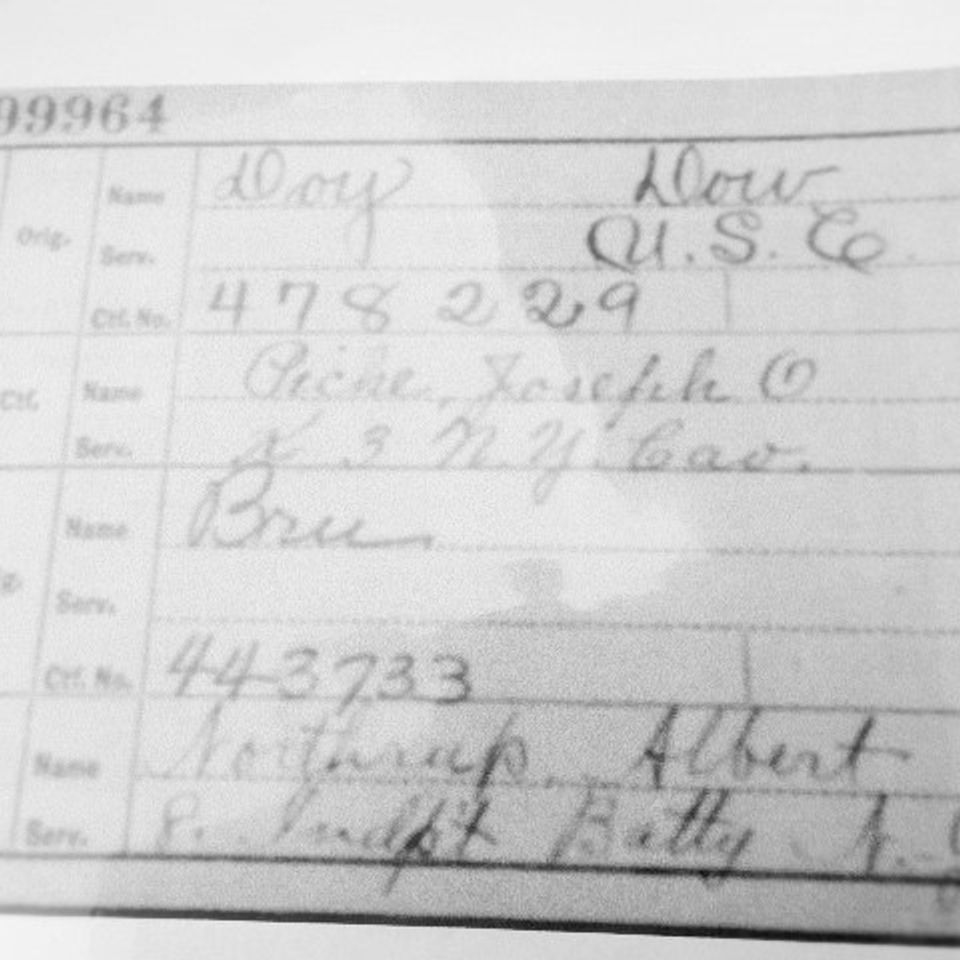 99964
Name Doy Dow
Orig. Serv. U.S.C.
Ctf. No. 478229
Ctf. Name Piche, Joseph O
Serv. K 3 N.Y. Cav.
Name Bru
Serv.
Ctf. No. 443733
Name Northrup, Albert
Serv. 8. Indpt Batty N.